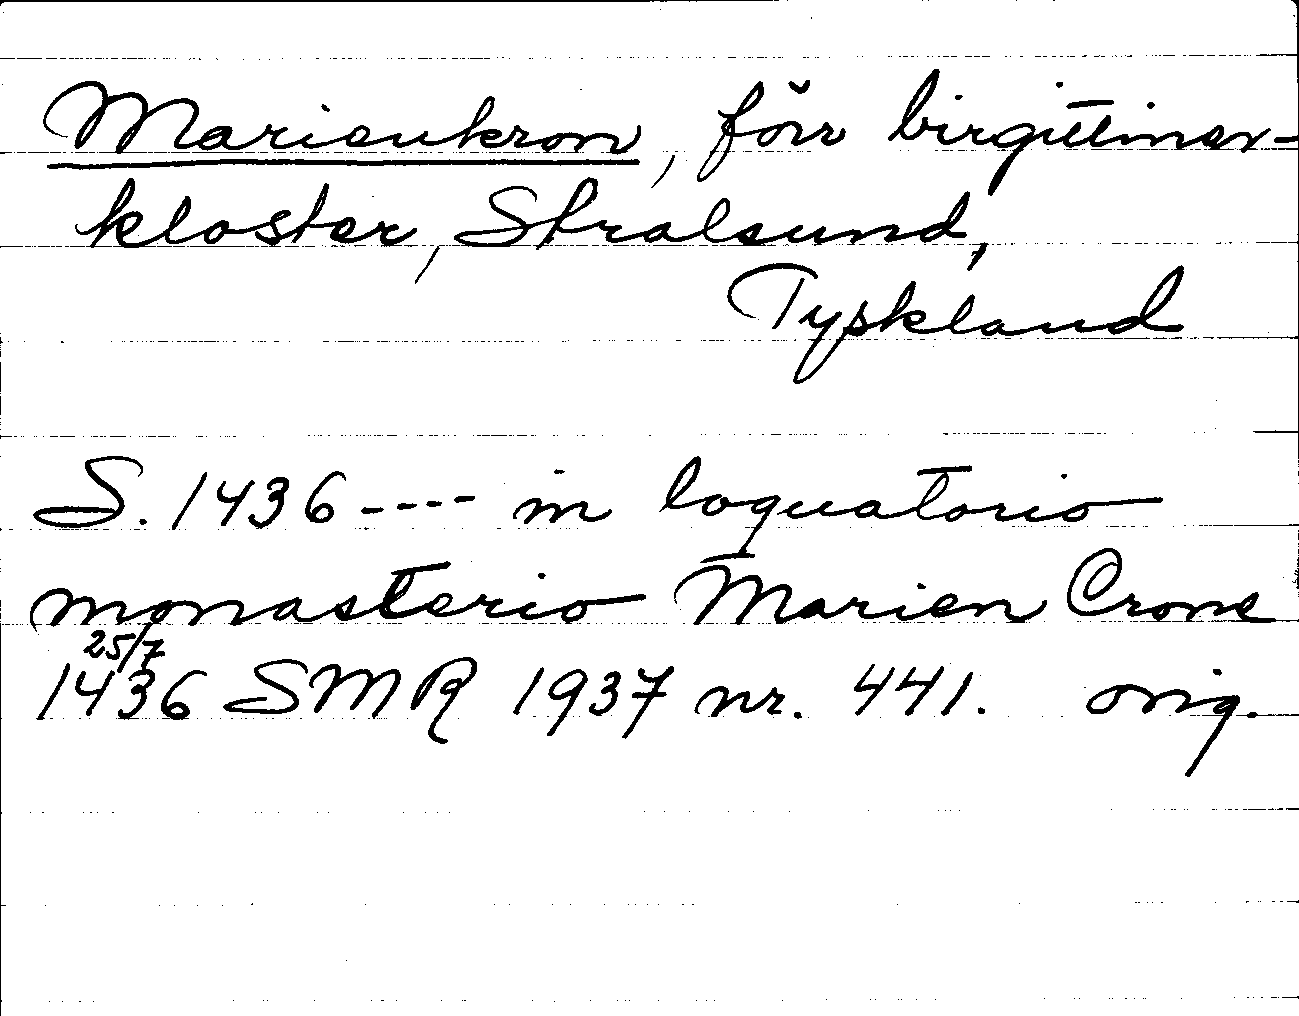 Marienkron, förr birgittiner-
kloster, Stralsund,
Tyskland
S. 1436 ---- in loquatorio
monasterio Marien Crone
25/7
1436 SMR 1937 nr. 441. orig.